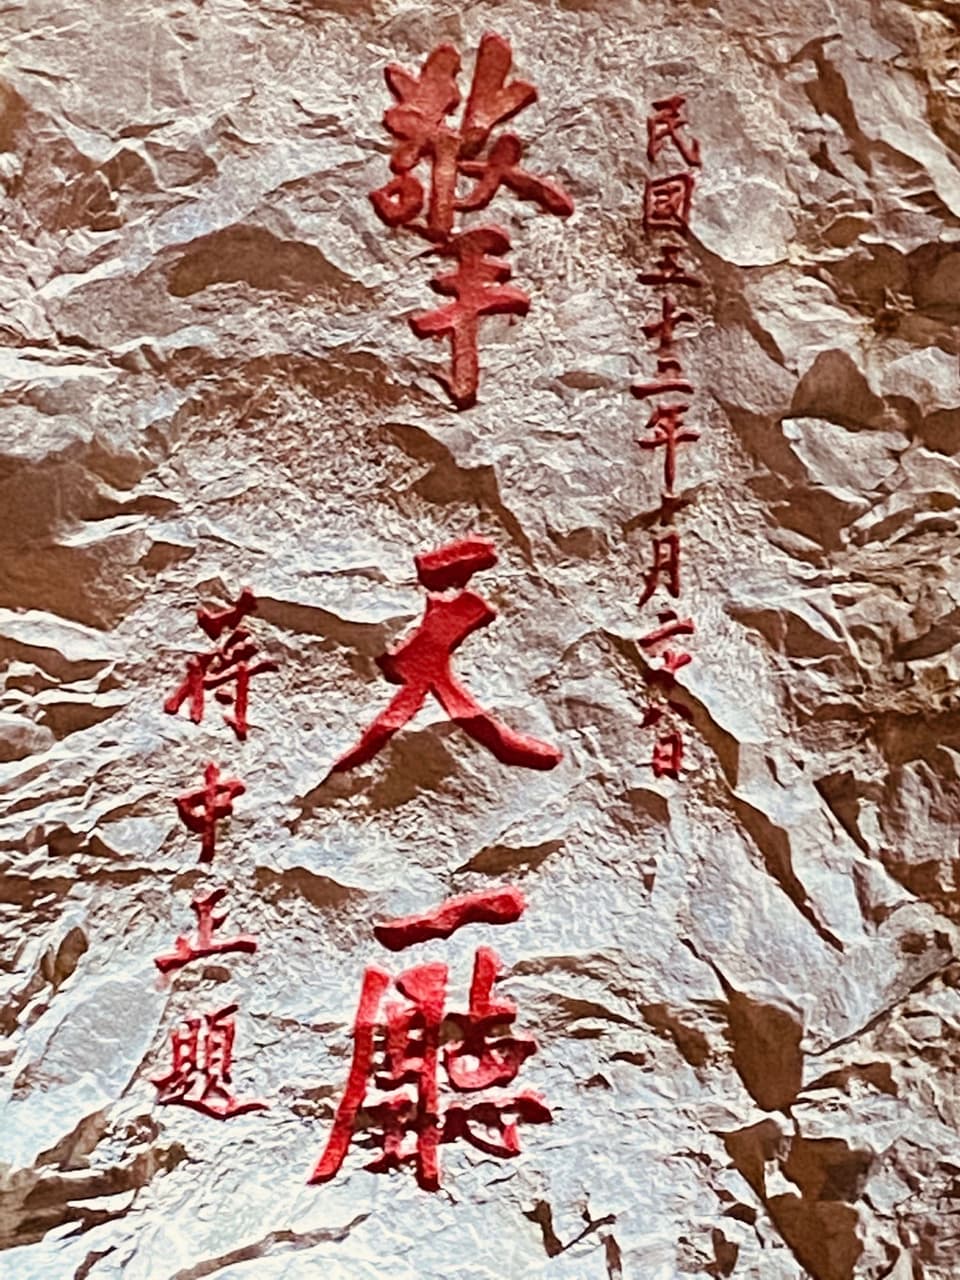 民國五十二年十月二十八日
擎天廳
蔣中正題